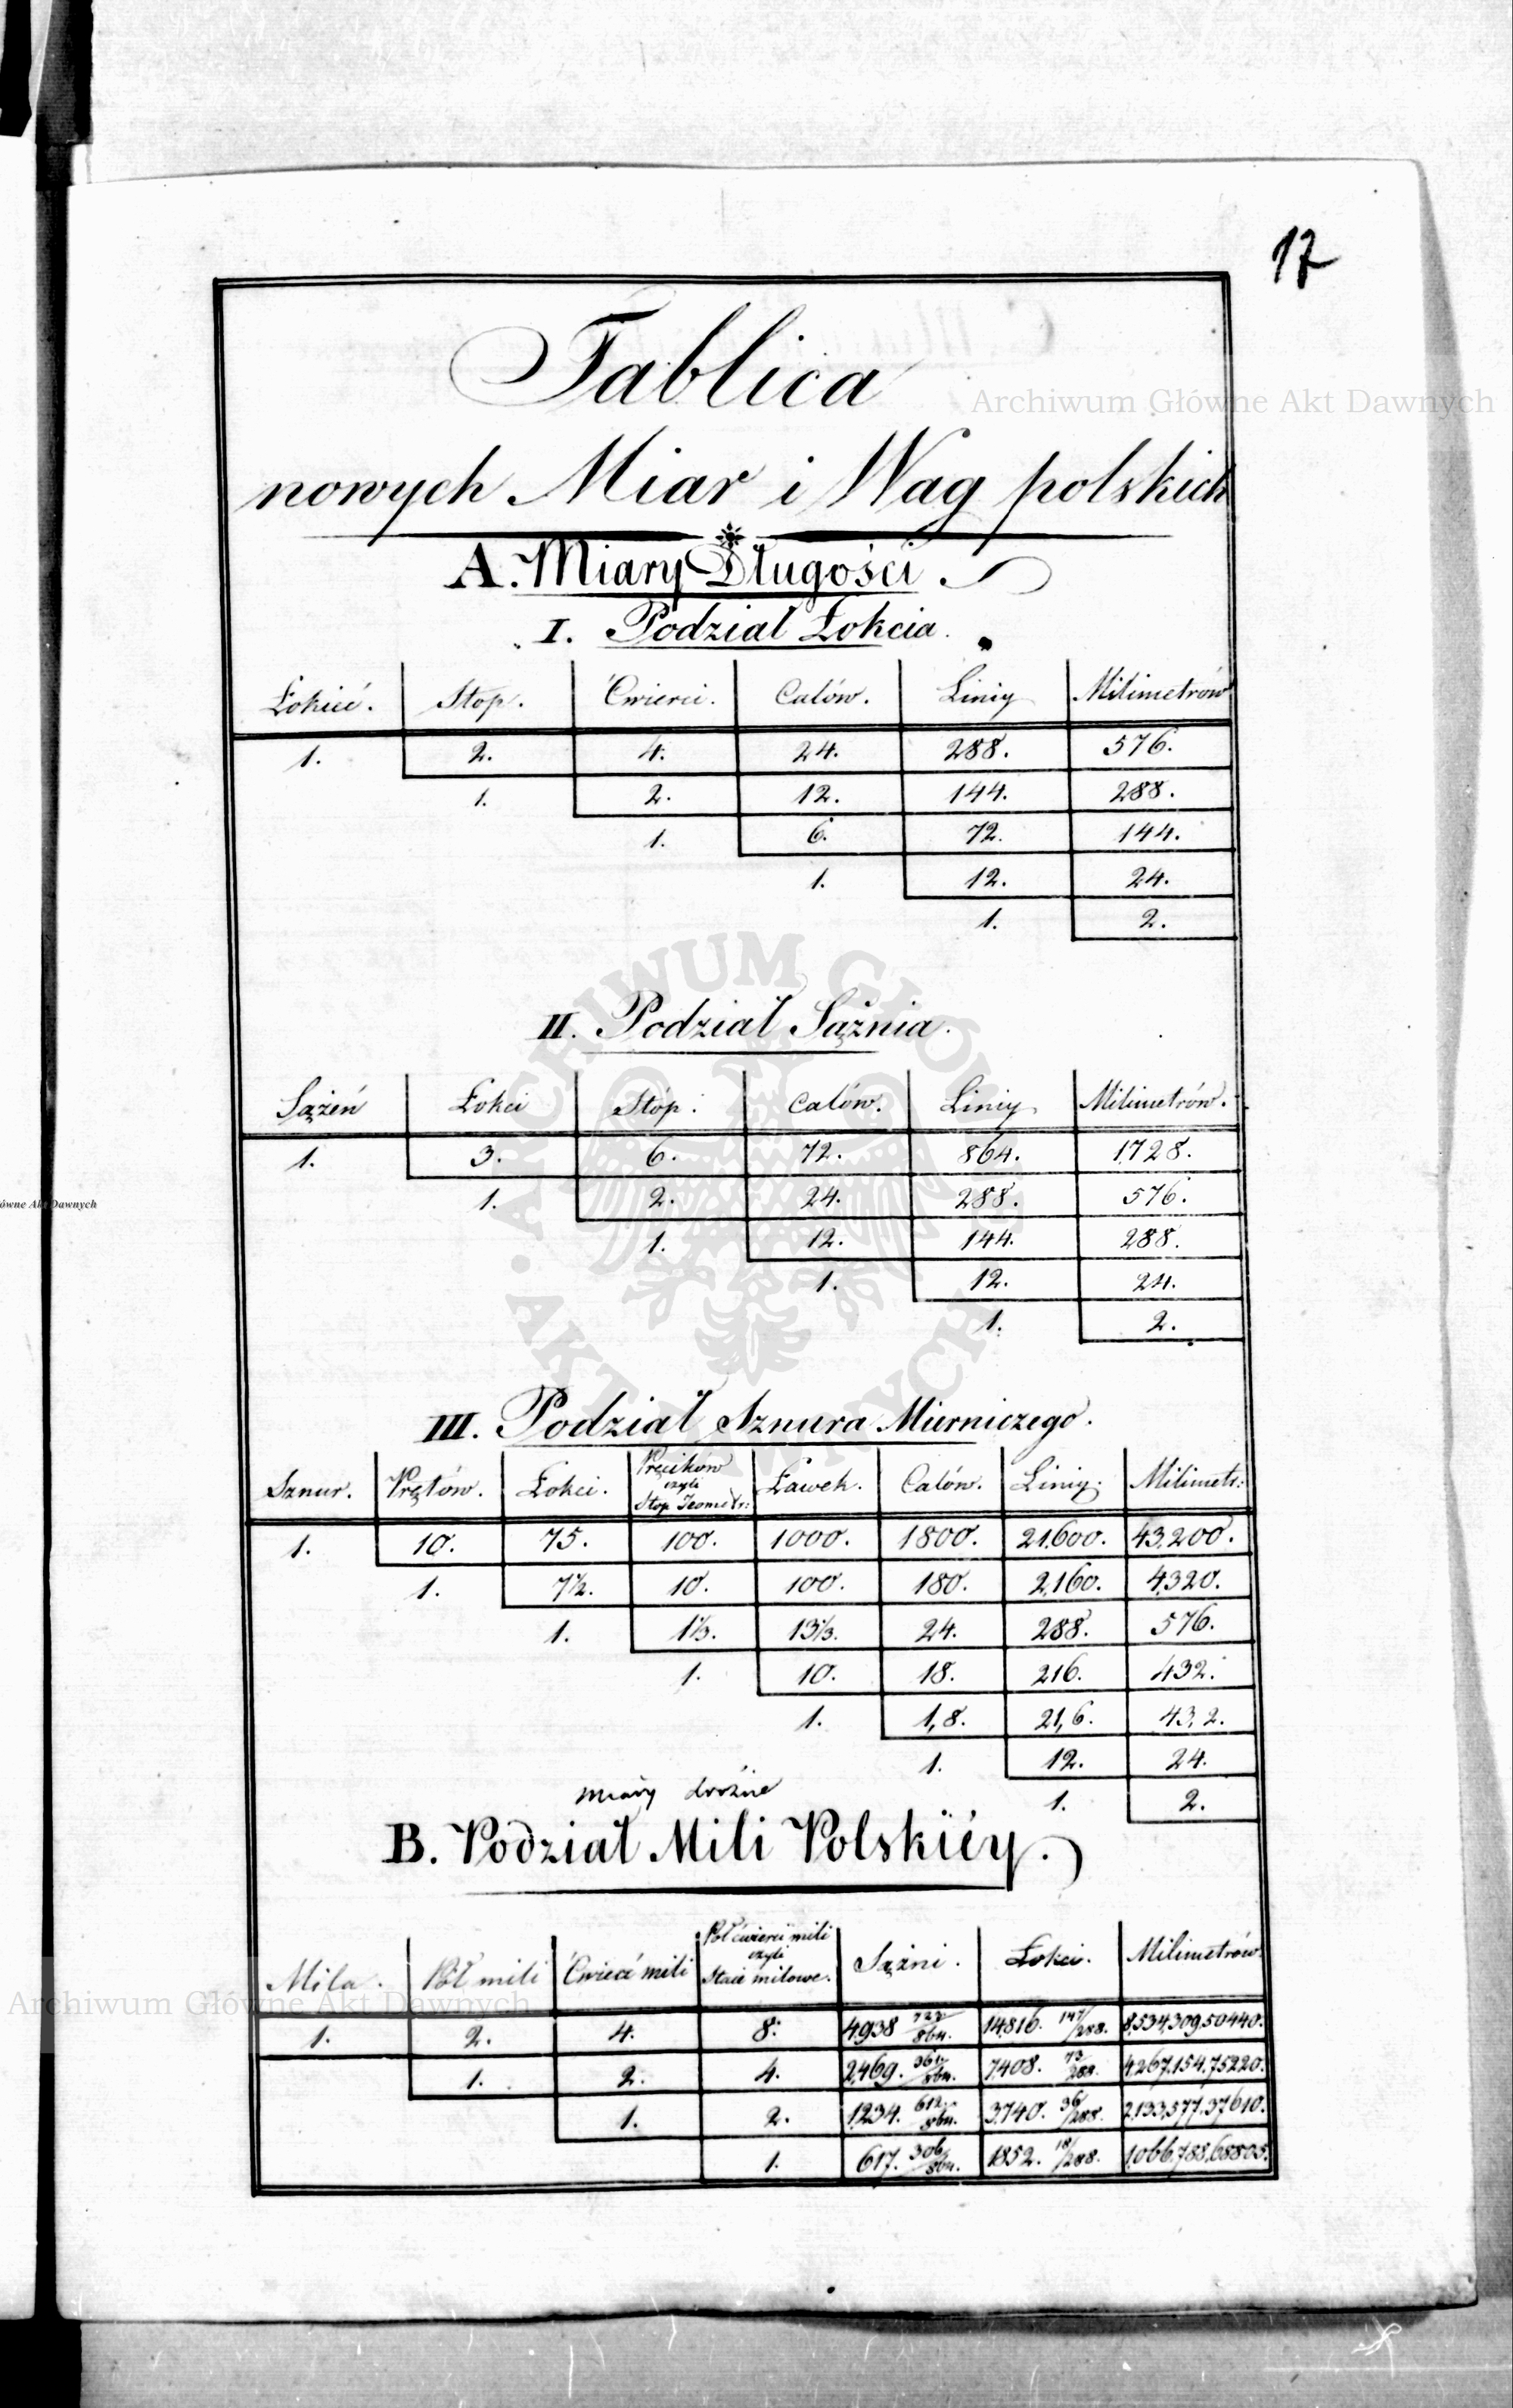 17
Tablica
nowych Miar i Wag polskich
A. Miary Długości
I. Podział Łokcia.
Łokieć. Stop. Ćwierci. Calów. Liniy Milimetrów
1. 2. 4. 24. 288. 576.
1. 2. 12. 144. 288.
1. 6. 72. 144.
1. 12. 24.
1. 2.
II. Podział Sążnia.
Sążeń Łokci Stóp. Calów. Liniy Milimetrów.
1. 3. 6. 72. 864. 1,728.
1. 2. 24. 288. 576.
1. 12. 144. 288.
1. 12. 24.
1. 2.
III. Podział Sznura Mierniczego.
Sznur. Prętów. Łokci. Pręcików czyli Stop Jeometr: Ławek. Calów. Liniy. Milimetr:
1. 10. 75. 100. 1000. 1800. 21,600. 43,200.
1. 7½. 10. 100. 180. 2,160. 4,320.
1. 1⅓. 13⅓. 24. 288. 576.
1. 10. 18. 216. 432.
1. 1,8. 21,6. 43,2.
1. 12. 24.
1. 2.
miary drożne
B. Podział Mili Polskiéy.
Mila. Pół mili Ćwierć mili Pół ćwierci mili czyli Staie milowe. Sążni. Łokci. Milimetrów
1. 2. 4. 8. 4,938 722/864. 14,816. 147/288. 8,534,309,50440.
1. 2. 4. 2,469. 361/864. 7,408. 73/288. 4,267,154,75220.
1. 2. 1,234. 612/864. 3,740. 36/288. 2,133,577,37610.
1. 617. 306/864. 1852. 18/288. 1,066,788,68805.
Archiwum Główne Akt Dawnych
ówne Akt Dawnych
ARCHIWUM GŁÓWNE AKT DAWNYCH
Archiwum Główne Akt Dawnych